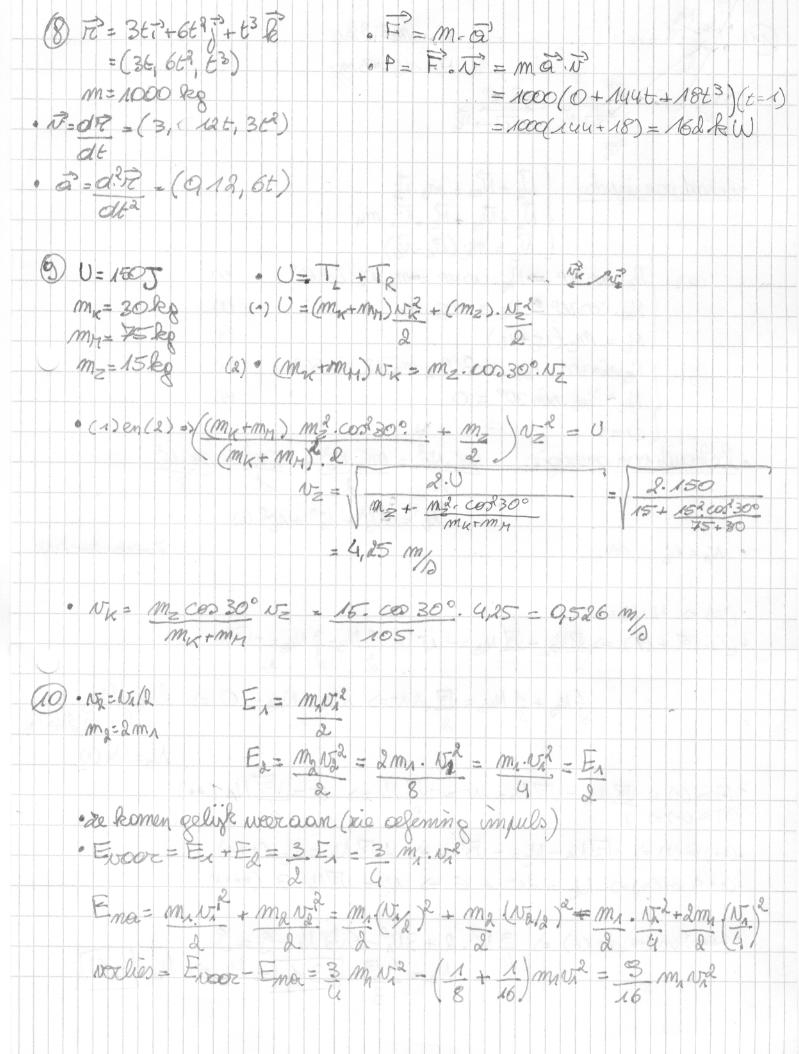 ⑧ r⃗ = 3t i⃗ + 6t² j⃗ + t³ k⃗
= (3t, 6t², t³)
m = 1000 kg
• v⃗ = dr⃗/dt = (3, 12t, 3t²)
• a⃗ = d²r⃗/dt² = (0,12, 6t)
• F⃗ = m · a⃗
• P = F⃗ · v⃗ = m a⃗ · v⃗
= 1000 (0 + 144t + 18t³) (t=1)
= 1000(144 + 18) = 162 kW
⑨ U = 150J
m_K = 30kg
m_M = 75kg
m_Z = 15kg
• U = T_L + T_R
v⃗_K v⃗_Z
(1) U = (m_K + m_M) v_K²/2 + (m_Z) · v_Z²/2
(2) • (m_K + m_M) v_K = m_Z · cos30° · v_Z
• (1) en (2) ⇒ ( (m_K + m_M) m_Z² · cos²30° / (m_K + m_M)² · 2 + m_Z/2 ) v_Z² = U
v_Z = √( 2·U / ( m_Z + m_Z² · cos²30° / (m_K + m_M) ) ) = √( 2·150 / ( 15 + 15² cos²30° / (75 + 30) ) )
= 4,25 m/s
• v_K = m_Z cos30° v_Z / (m_K + m_M) = 15 · cos30° · 4,25 / 105 = 0,526 m/s
⑩ • v₂ = v₁/2
m₂ = 2m₁
E₁ = m₁v₁²/2
E₂ = m₂v₂²/2 = 2m₁ · v₁²/8 = m₁ · v₁²/4 = E₁/2
• ze komen gelijk weer aan (zie oefening impuls)
• E_voor = E₁ + E₂ = 3/2 E₁ = 3/4 m₁ · v₁²
E_na = m₁ · v₁²/2 + m₂ v₂²/2 = m₁/2 (v₁/2)² + m₂/2 (v₂/2)² = m₁/2 · v₁²/4 + 2m₁/2 (v₁/4)²
verlies = E_voor - E_na = 3/4 m₁ v₁² - (1/8 + 1/16) m₁v₁² = 9/16 m₁ v₁²